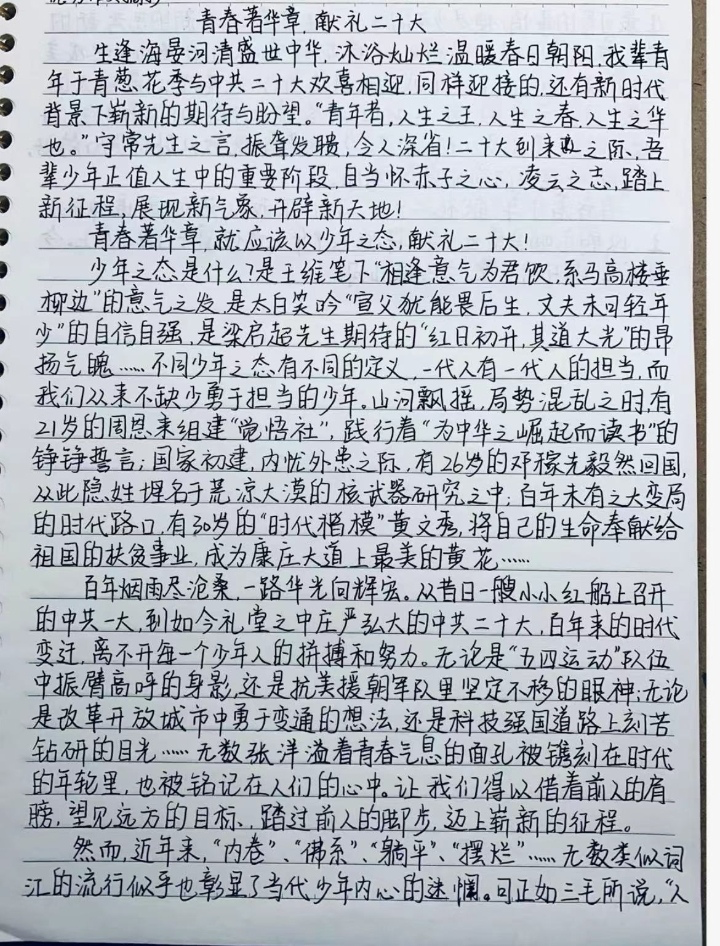 青春著华章,献礼二十大
生逢海晏河清盛世中华,沐浴灿烂温暖春日朝阳,我辈青
年于青葱花季与中共二十大欢喜相迎,同样迎接的,还有新时代
背景下崭新的期待与盼望。“青年者,人生之王,人生之春,人生之华
也。”守常先生之言,振聋发聩,令人深省!二十大到来之际,吾
辈少年正值人生中的重要阶段,自当怀赤子之心,凌云之志,踏上
新征程,展现新气象,开辟新天地!
青春著华章,就应该以少年之态,献礼二十大!
少年之态是什么?是王维笔下“相逢意气为君饮,系马高楼垂
柳边”的意气之发,是太白笑吟“宣父犹能畏后生,丈夫未可轻年
少”的自信自强,是梁启超先生期待的“红日初升,其道大光”的昂
扬气魄……不同少年之态有不同的定义,一代人有一代人的担当,而
我们从来不缺少勇于担当的少年。山河飘摇,局势混乱之时,有
21岁的周恩来组建“觉悟社”,践行着“为中华之崛起而读书”的
铮铮誓言;国家初建,内忧外患之际,有26岁的邓稼先毅然回国,
从此隐姓埋名于荒凉大漠的核武器研究之中;百年未有之大变局
的时代路口,有30岁的“时代楷模”黄文秀,将自己的生命奉献给
祖国的扶贫事业,成为康庄大道上最美的黄花……
百年烟雨尽沧桑,一路华光向辉宏。从昔日一艘小小红船上召开
的中共一大,到如今礼堂之中庄严弘大的中共二十大,百年来的时代
变迁,离不开每一个少年人的拼搏和努力。无论是“五四运动”队伍
中振臂高呼的身影,还是抗美援朝军队里坚定不移的眼神;无论
是改革开放城市中勇于变通的想法,还是科技强国道路上刻苦
钻研的目光……无数张洋溢着青春气息的面孔被镌刻在时代
的年轮里,也被铭记在人们的心中。让我们得以借着前人的肩
膀,望见远方的目标、踏过前人的脚步,迈上崭新的征程。
然而,近年来,“内卷”、“佛系”、“躺平”、“摆烂”……无数类似词
汇的流行似乎也彰显了当代少年内心的迷惘。可正如三毛所说,“人